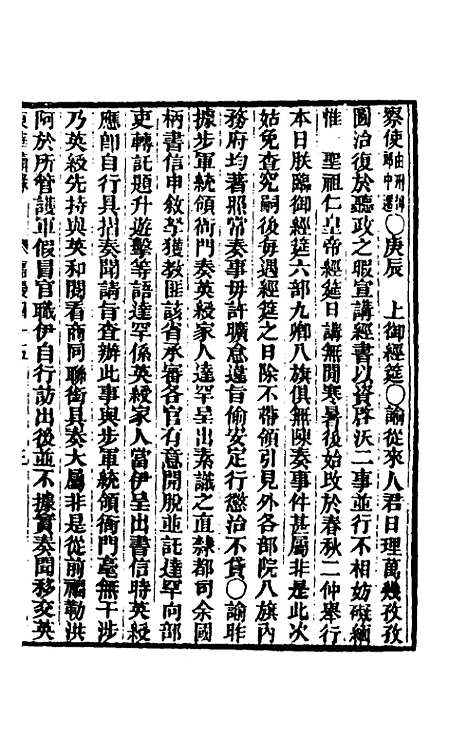 察使由刑部郎中遷○庚辰　上御經筵○諭從來人君日理萬幾孜孜
圖治復於聽政之暇宣講經書以資啓沃二事並行不相妨礙緬
惟　聖祖仁皇帝經筵日講無閒寒暑後始改於春秋二仲舉行
本日朕臨御經筵六部九卿八旗俱無陳奏事件甚屬非是此次
姑免查究嗣後每遇經筵之日除不帶領引見外各部院八旗內
務府均著照常奏事毋許曠怠違旨偷安定行懲治不貸○諭昨
據步軍統領衙門奏英綬家人達罕呈出素識之直隸都司余國
柄書信申敘拏獲教匪該省承審各官有意開脫並託達罕向部
吏轉託題升遊擊等語達罕係英綬家人當伊呈出書信時英綬
應卽自行具摺奏聞請旨查辦此事與步軍統領衙門毫無干涉
乃英綬先持與英和閱看商同聯銜具奏大屬非是從前福勒洪
阿於所管護軍假冒官職伊自行訪出後並不據實奏聞移交英